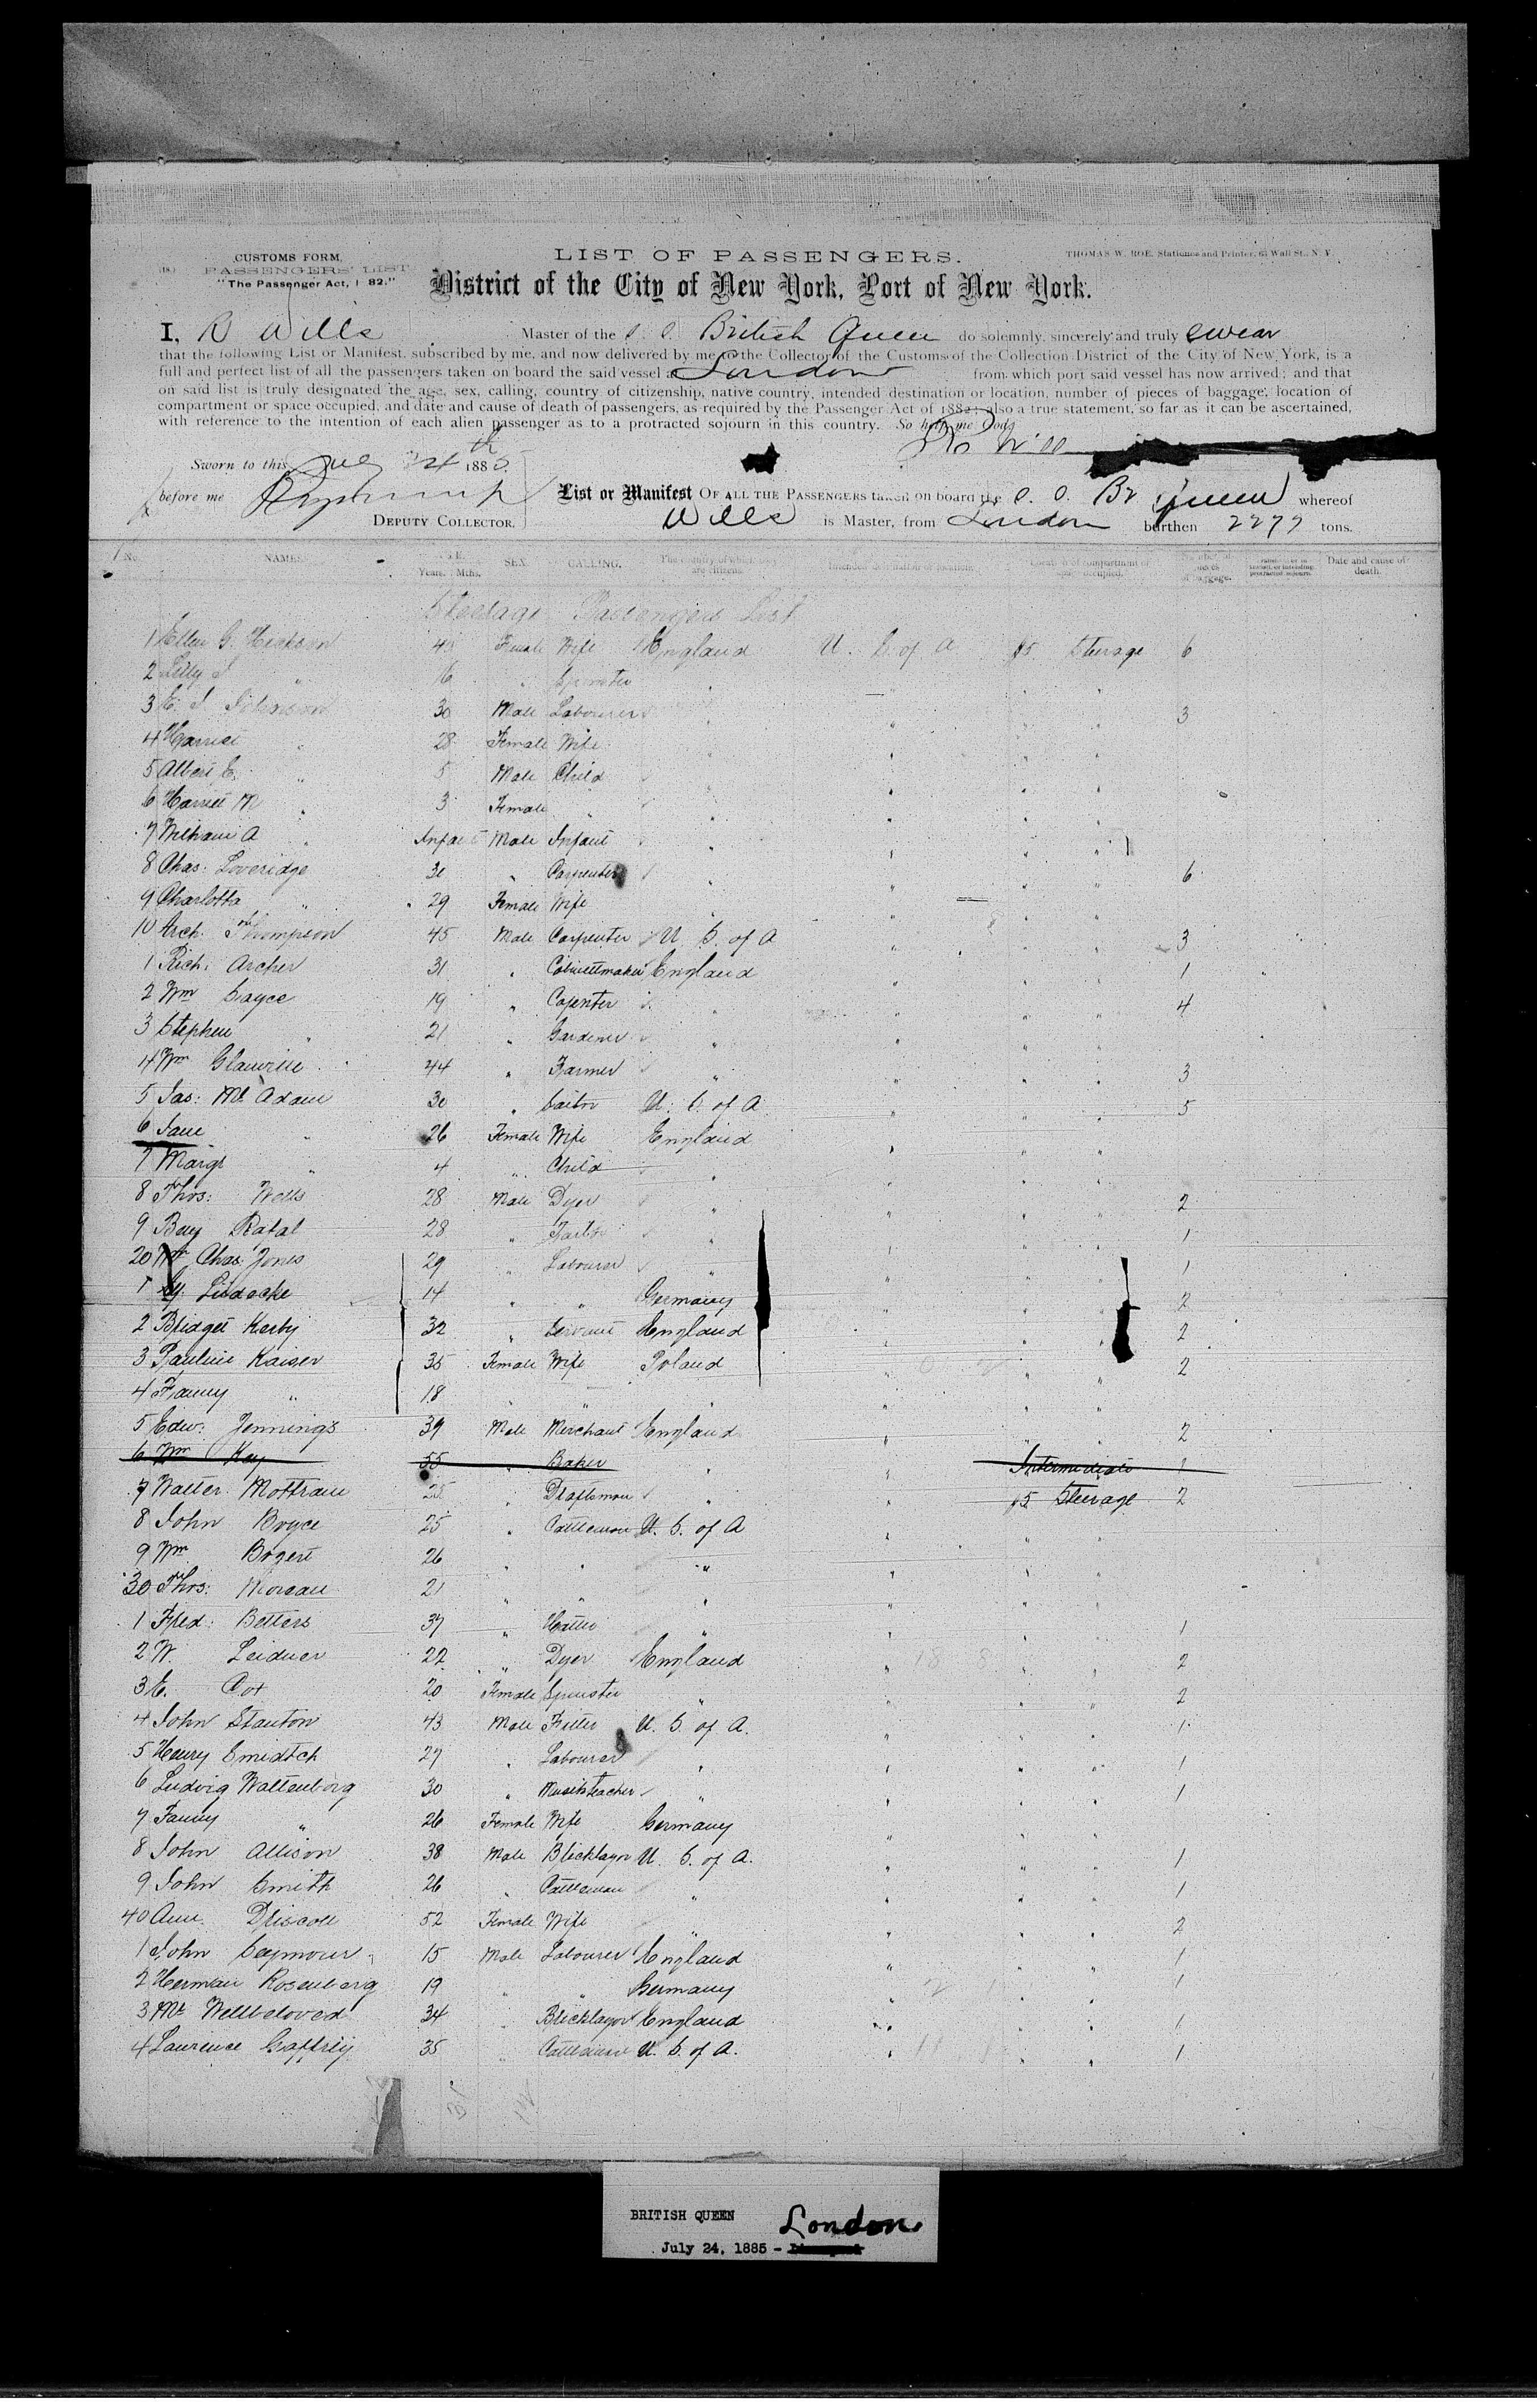 CUSTOMS FORM,
PASSENGERS' LIST
"The Passenger Act, 1 82."
LIST OF PASSENGERS.
THOMAS W. ROE, Stationer and Printer, 63 Wall St., N.Y.
District of the City of New York, Port of New York.
I, R Wills Master of the S. S. British Queen do solemnly, sincerely and truly swear
that the following List or Manifest, subscribed by me, and now delivered by me to the Collector of the Customs of the Collection District of the City of New York, is a
full and perfect list of all the passengers taken on board the said vessel at London from which port said vessel has now arrived; and that
on said list is truly designated the age, sex, calling, country of citizenship, native country, intended destination or location, number of pieces of baggage, location of
compartment or space occupied, and date and cause of death of passengers, as required by the Passenger Act of 1882; also a true statement, so far as it can be ascertained,
with reference to the intention of each alien passenger as to a protracted sojourn in this country. So help me God.
Sworn to this 24th 1885
before me
DEPUTY COLLECTOR.
List or Manifest OF ALL THE PASSENGERS taken on board the S. S. Br Queen whereof
Wills is Master, from London burthen 2277 tons.
No. NAMES. AGE. Years. Mths. SEX. CALLING. The country of which they are citizens. Intended destination or location. Location of compartment or space occupied. Number of pieces of baggage. Date and cause of death.
Steerage Passengers List
1 Ellen G. Hickson Female Wife England U. S. of A 5 Steerage 6
2 Lilly " 16 " Spinster
3 E. J. Johnson 30 Male Labourer " 3
4 Harriet " 28 Female Wife
5 Albert E. " 5 Male Child
6 Harriet M " 3 Female "
7 William A " Infant Male Infant "
8 Chas: Loveridge " Carpenter " 6
9 Charlotta " 29 Female Wife "
10 Arch. Thompson 45 Male Carpenter U. S. of A 3
1 Rich. Archer 31 " Cabinettmaker England 1
2 Wm Sayce 19 " Capenter " 4
3 Stephen " 21 " Gardener "
4 Wm Glanville 44 " Farmer " 3
5 Jas: Mc Adam 30 " Sailor U. S. of A 5
6 Jane " 26 Female Wife England
7 Margt " 4 " Child "
8 Thos: Wells 28 Male Dyer " 2
9 Benj Rafal 28 " Tailor " 1
20 Chas: Jones 29 " Labourer " 1
1 14 " " Germany 2
2 Bridget Kerby 32 " Servant England 2
3 Pauline Kaiser 35 Female Wife Poland 2
4 Fanny " 18 " "
5 Edw: Jennings 39 Male Merchant England 2
6 Wm Key 55 " Baker " Intermediate 1
7 Walter Mottram " Draftsman " 5 Steerage 2
8 John Boyce 25 " Cattleman U. S. of A
9 Wm Bogert 26 " " "
30 Thos: 21 " " "
1 Fred: Betters 37 " Hatter " 1
2 W. Leidner 22 " Dyer England 2
3 E. Cox 20 Female Spinster " 2
4 John Stanton 43 Male Fitter U. S. of A. 1
5 Henry Smidtch 27 " Labourer " 1
6 Ludvig Waltenborg 30 " Musikteacher " 1
7 Fanny " 26 Female Wife Germany
8 John Allison 38 Male Blicklayer U. S. of A. 1
9 John Smith 26 " Cattleman " 1
40 Ann Driscoll 52 Female Wife " 2
1 John Seymour 15 Male Labourer England 1
2 Herman Rosenberg 19 " " Germany 1
3 Mr Wellbeloved 34 " Blicklayer England 1
4 Laurence Gaffrey 35 " Cattleman U. S. of A. 1
BRITISH QUEEN London
July 24, 1885 -